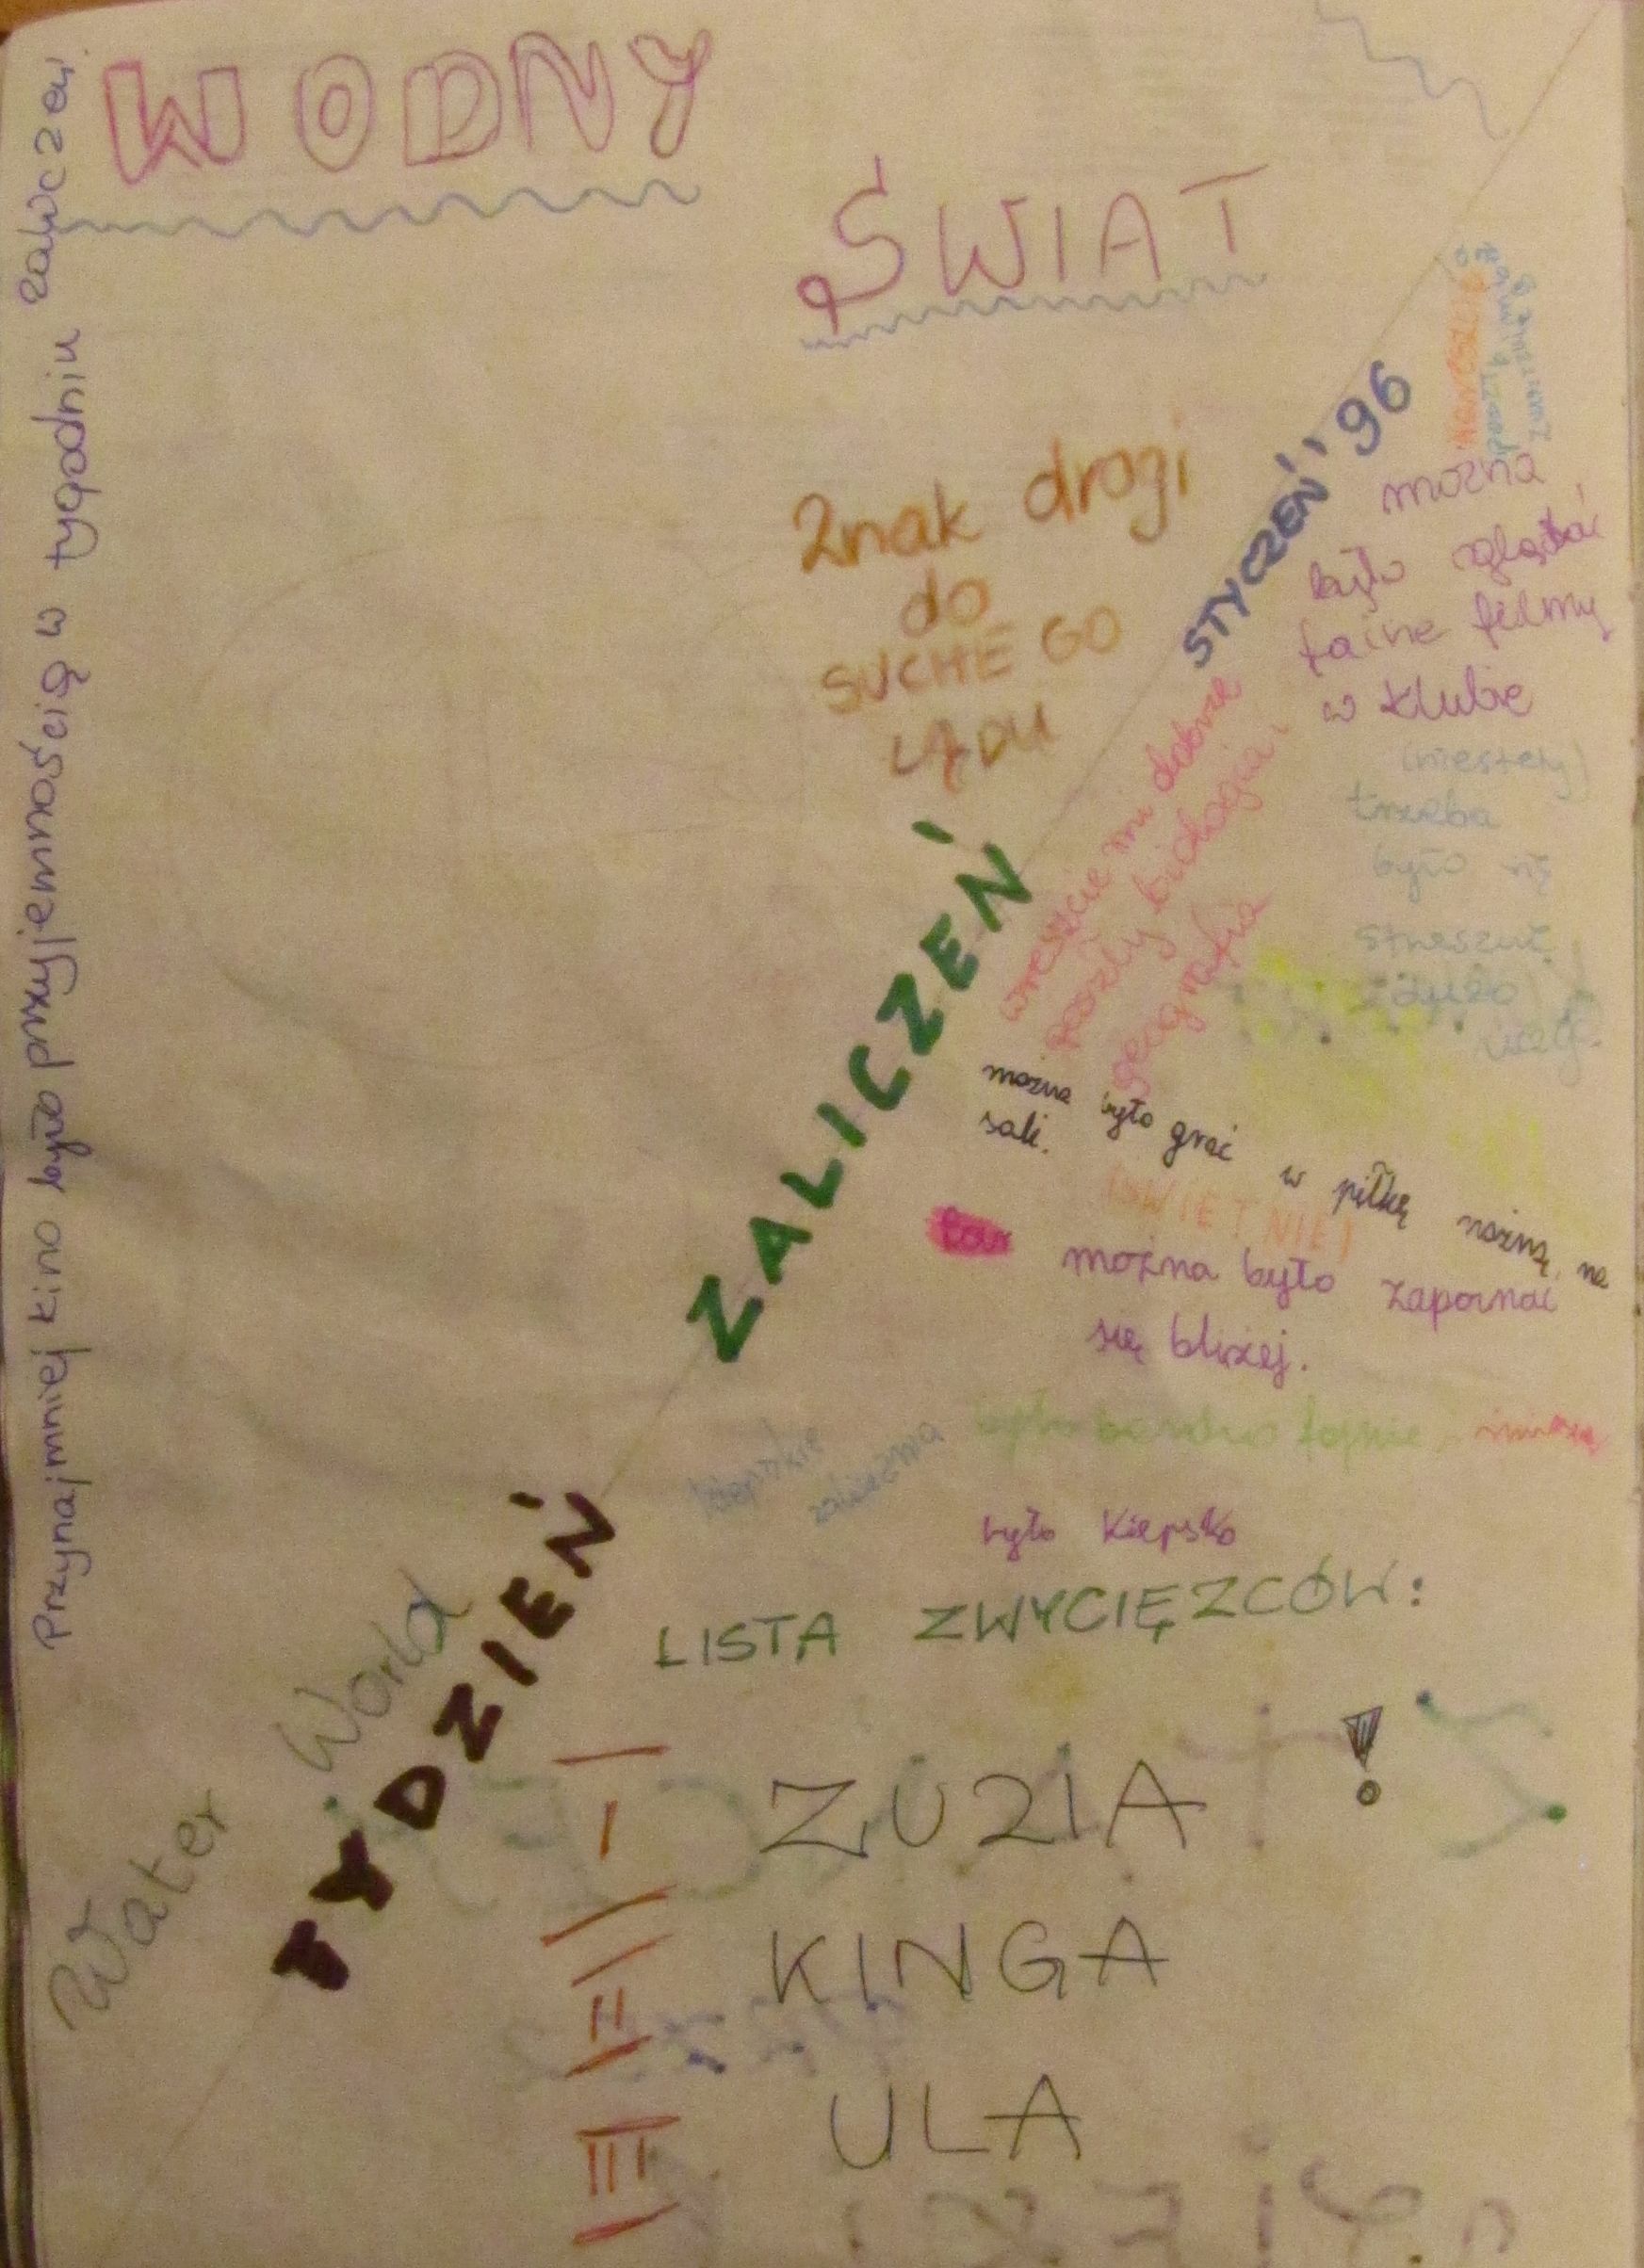 WODNY
ŚWIAT
Przynajmniej kino było przyjemnością w tygodniu zaliczeń.
Znak drogi
do
SUCHEGO
LĄDU
STYCZEŃ '96
ZALICZEŃ
TYDZIEŃ
Water World
można
było oglądać
fajne filmy
w klubie
(niestety)
trzeba
było się
streszczać
dużo
wreszcie mi dobrze
poszły biologia i
geografia
można było grać w piłkę nożną na
sali.
ŚWIETNIE!
można było zapoznać
się bliżej.
było bardzo fajnie,
kiepskie
było kiepsko
LISTA ZWYCIĘZCÓW:
I ZUZIA !
II KINGA
III ULA